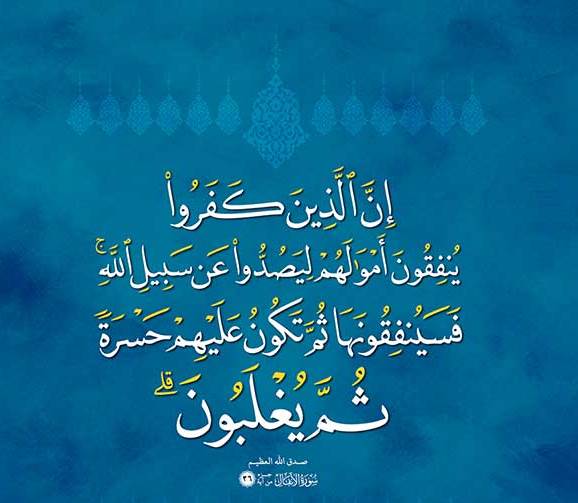 إِنَّ ٱلَّذِينَ كَفَرُوا۟
يُنفِقُونَ أَمْوَٰلَهُمْ لِيَصُدُّوا۟ عَن سَبِيلِ ٱللَّهِ ۚ
فَسَيُنفِقُونَهَا ثُمَّ تَكُونُ عَلَيْهِمْ حَسْرَةً
ثُمَّ يُغْلَبُونَ ۗ
صدق الله العظيم
سُورَةُ الأَنفَال من آية ٣٦